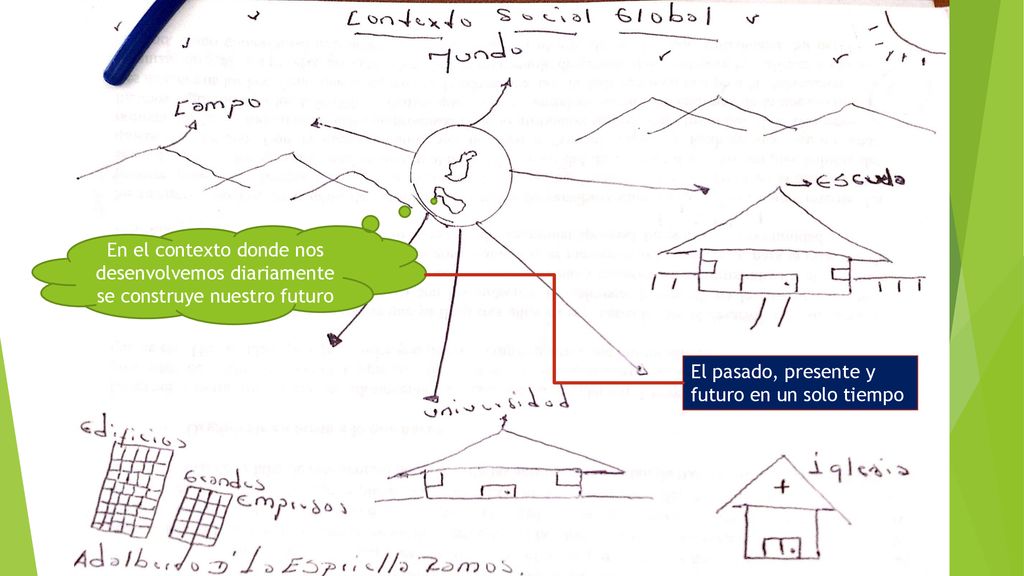 Contexto Social Global
Mundo
Campo
Escuela
En el contexto donde nos
desenvolvemos diariamente
se construye nuestro futuro
El pasado, presente y
futuro en un solo tiempo
Universidad
Edificios
Grandes
Empresas
Iglesia
Adalberto D' La Espriella Ramos.